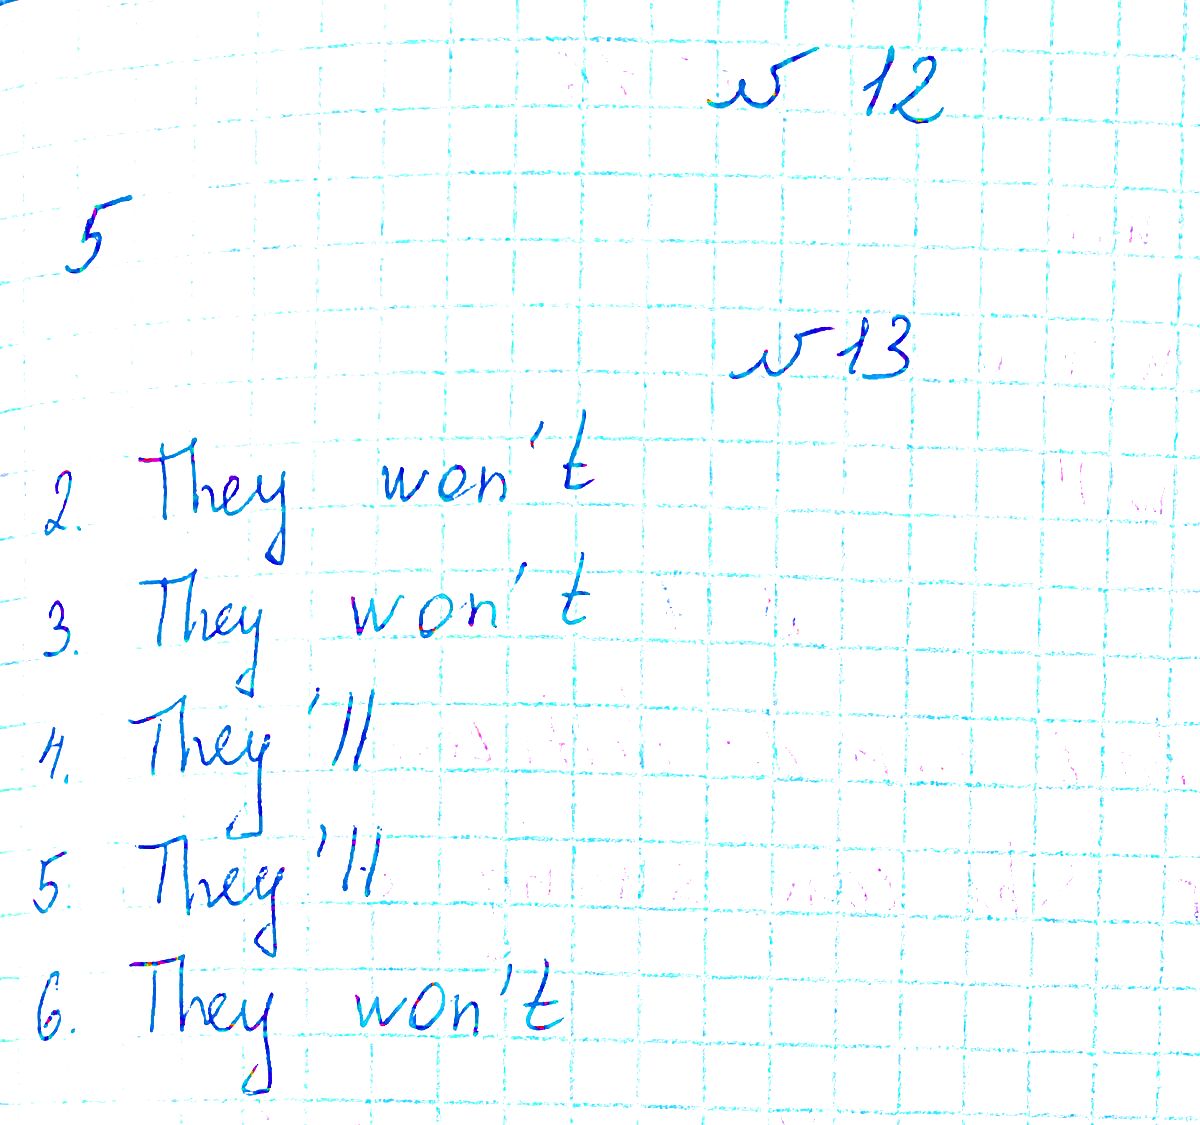 № 12
5
№ 13
2. They won't
3. They won't
4. They'll
5. They'll
6. They won't